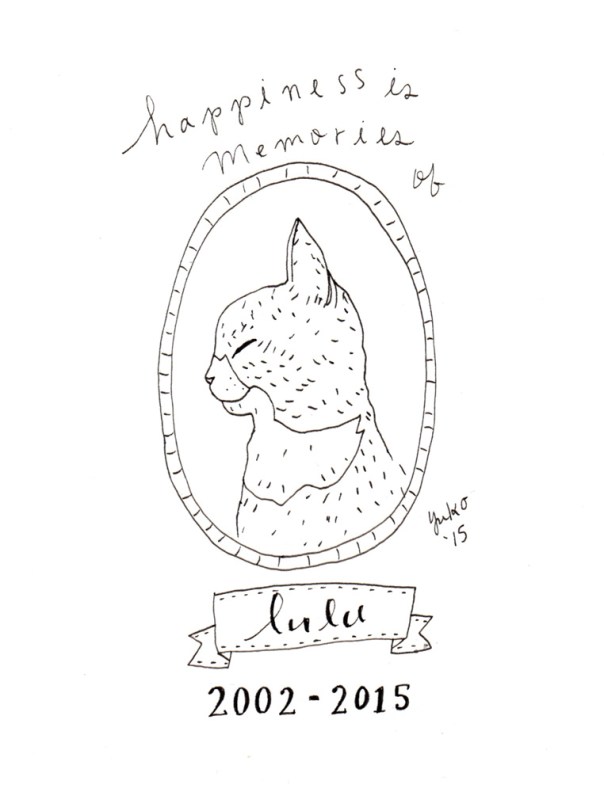 happiness is
memories
of
yuko
'15
lulu
2002-2015